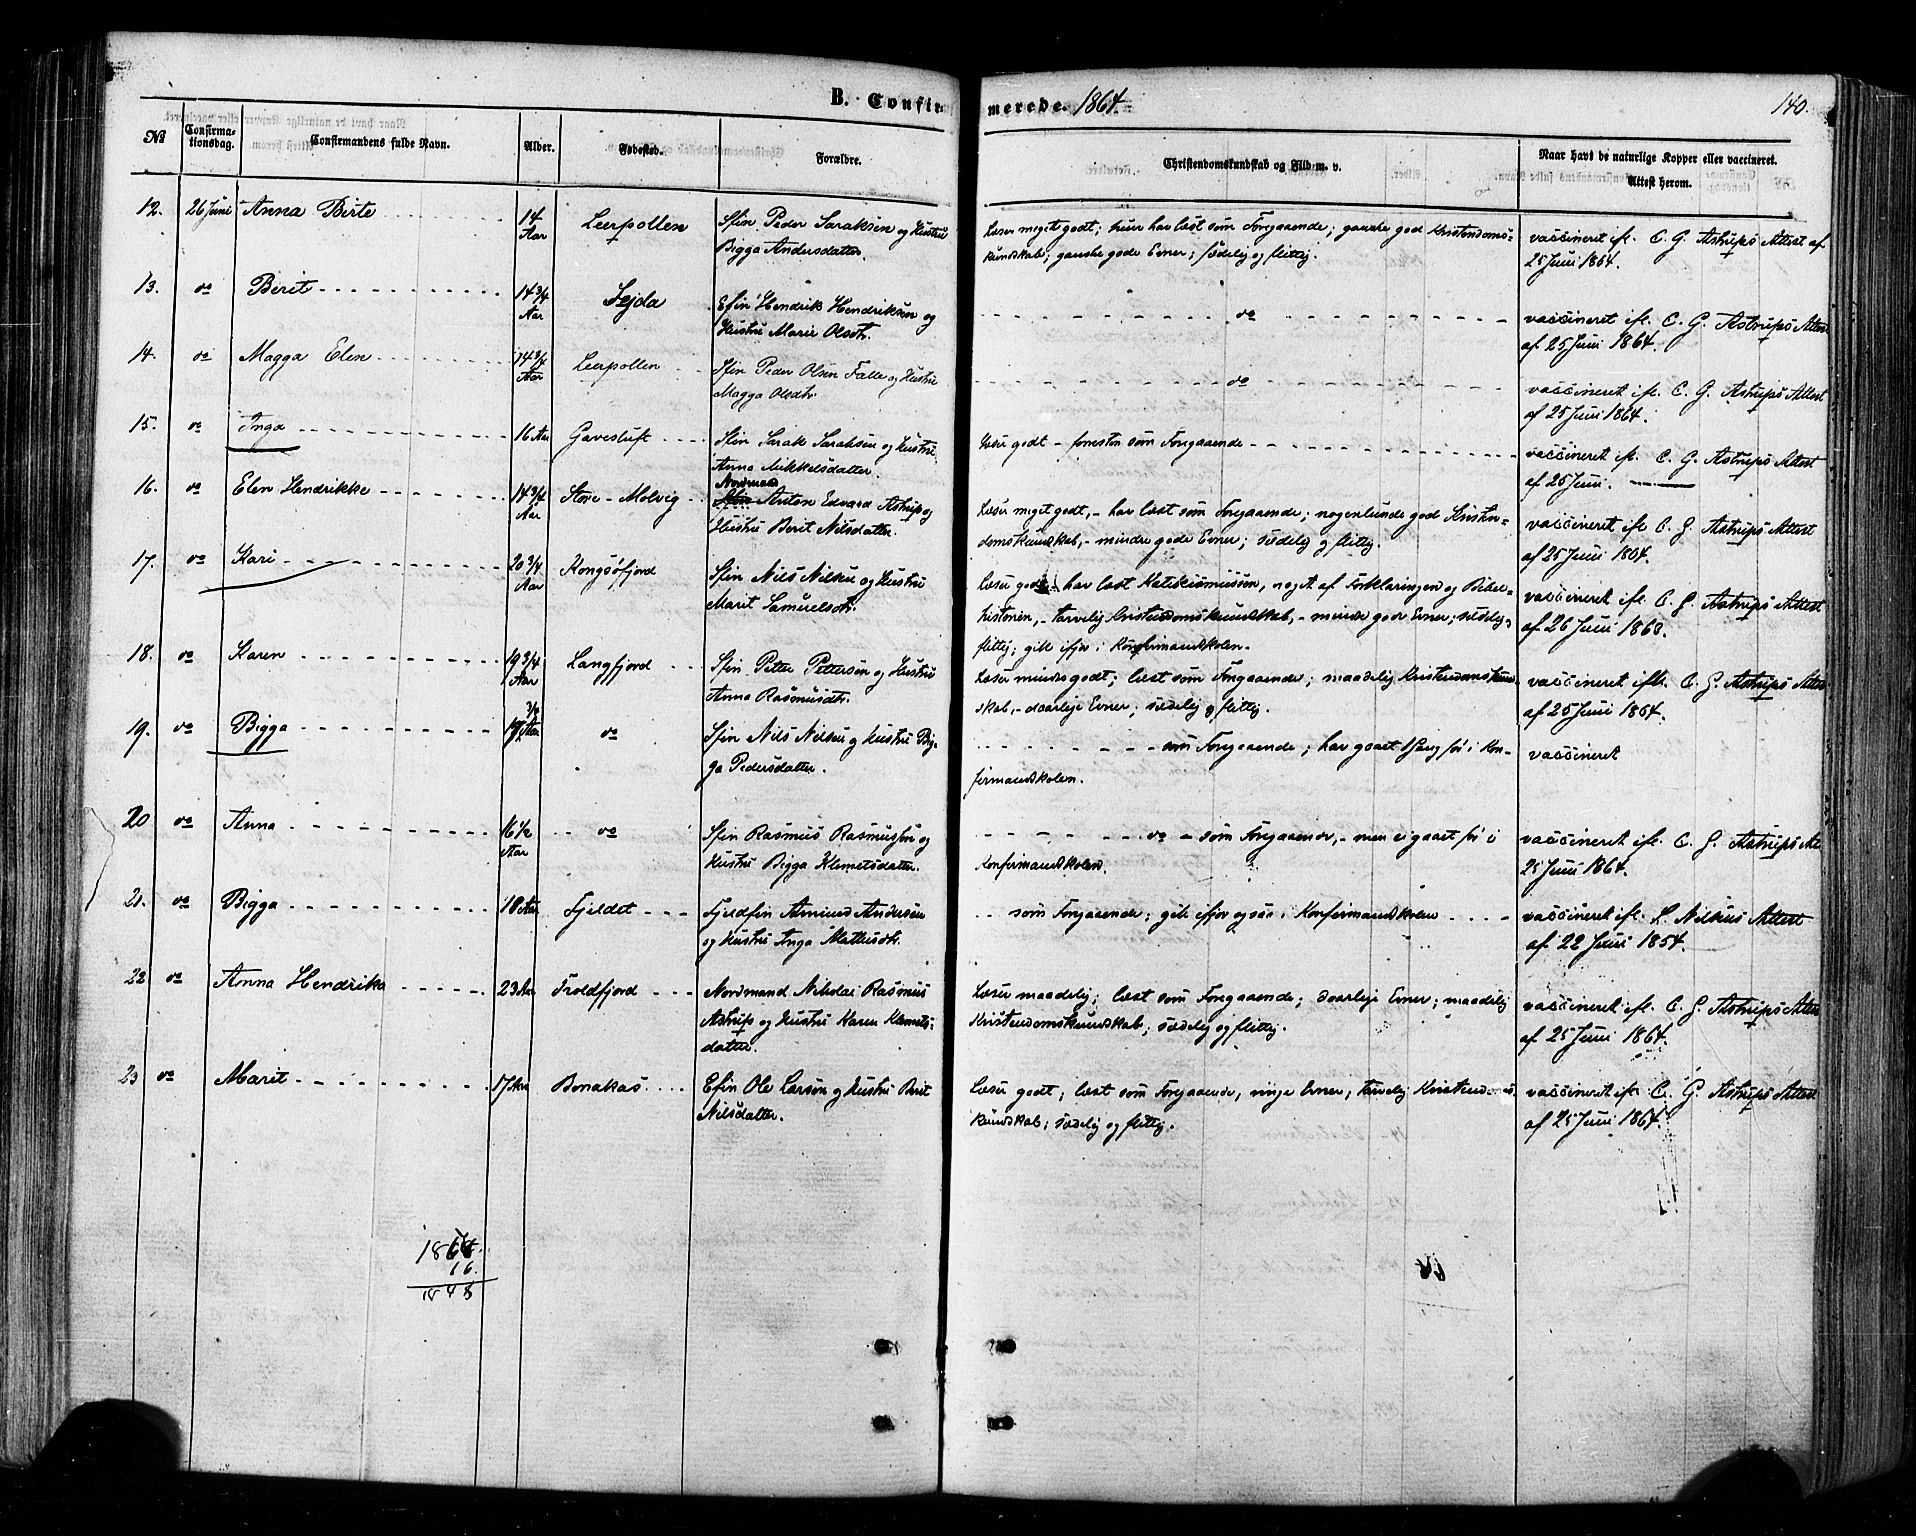 B. Confirmerede. 1864. 140.
№ Confirmationsdag. Confirmandens fulde Navn. Alder. Fødested. Forældre. Christendomskundskab og Flid m. v. Naar havt de naturlige Kopper eller vaccineret. Attest herom.
12. 26 Juni Anna Birte 14 Aar Leerpollen Sfin Peder Saraksen og Hustru
Bigga Andersdatter. Læser meget godt; hun har læst som Foregaaende; ganske god Kristendoms-
kundskab; ganske gode Evner; sædelig og flittig. vaccineret ifl. C. G. Astrups Attest af
25 Juni 1864.
13. do Berit 14 3/4 Aar Sejda Efin Hendrik Hendriksen og
Hustru Marie Olsdtr. do vaccineret ifl. C. G. Astrups Attest
af 25 Juni 1864.
14. do Magga Elen 14 3/4 Aar Leerpollen Sfin Peder Olsen Falle og Hustru
Magga Olsdtr. do vaccineret ifl. C. G. Astrups Attest
af 25 Juni 1864.
15. do Inga 16 Aar Gavesluft Sfin Sarak Saraksen og Hustru
Anna Mikkelsdatter. Læser godt - forresten som Foregaaende vaccineret ifl. C. G. Astrups Attest
af 25 Juni.
16. do Elen Hendrikke 14 3/4 Aar Store-Molvig Nordmand Anton Edvard Astrup og
Hustru Berit Nilsdatter. Læser meget godt, - har læst som Foregaaende; nogenlunde god Kristen-
domskundskab, - mindre gode Evner; sædelig og flittig. vaccineret ifl. C. G. Astrups Attest
af 25 Juni 1864.
17. do Kari 20 3/4 Aar Kongsøfjord Sfin Nils Nilsen og Hustru
Marit Samuelsdtr. Læser godt har læst Katekismussen, noget af Forklaringen og Bibel-
historien, - tarvelig Kristendomskundskab, - mindre gode Evner; sædelig
flittig; gik ifjor i Konfirmandskolen. vaccineret ifl. C. G. Astrups Attest
af 26 Juni 1863.
18. do Karen 19 3/4 Aar Langfjord Sfin Petter Pettersen og Hustru
Anna Rasmusdtr. Læser mindre godt; læst som Foregaaende; maadelig Kristendomskund-
skab, - daarlige Evner; sædelig og flittig. vaccineret ifl. C. G. Astrups Attest
af 25 Juni 1864.
19. do Bigga do Sfin Nils Nilsen og Hustru Big-
ga Pedersdatter. som Foregaaende; har gaaet 1 Gang før i Kon-
firmandskolen. vaccineret
20 do Anna 16 1/2 Aar do Sfin Rasmus Rasmussen og
Hustru Bigga Klemetsdatter. do - som Foregaaende, - men ei gaaet før i
Konfirmandskolen. vaccineret ifl. C. G. Astrups At.
25 Juni 1864.
21. do Bigga 18 Aar Fjeldet Fjeldfin Amund Andersen
og Hustru Inga Mathisdtr. som Foregaaende; gik ifjor også i Konfirmandskolen vaccineret ifl. Attest
af 22 Juni 1854.
22 do Anna Hendrika 23 Aar Troldfjord Nordmand Nikolai Rasmus
Astrup og Hustru Karen Klemets-
datter. Læser maadelig; læst som Foregaaende; daarlige Evner; maadelig
Kristendomskundskab; sædelig og flittig. vaccineret ifl. C. G. Astrups Attest
af 25 Juni 1864.
23 do Marit 17 Aar Bonakas Efin Ole Larsen og Hustru Berit
Nilsdatter. Læser godt; læst som Foregaaende, ringe Evner, tarvelig Kristendoms-
kundskab; sædelig og flittig. vaccineret ifl. C. G. Astrups Attest
af 25 Juni 1864.
1864.
16.
1848